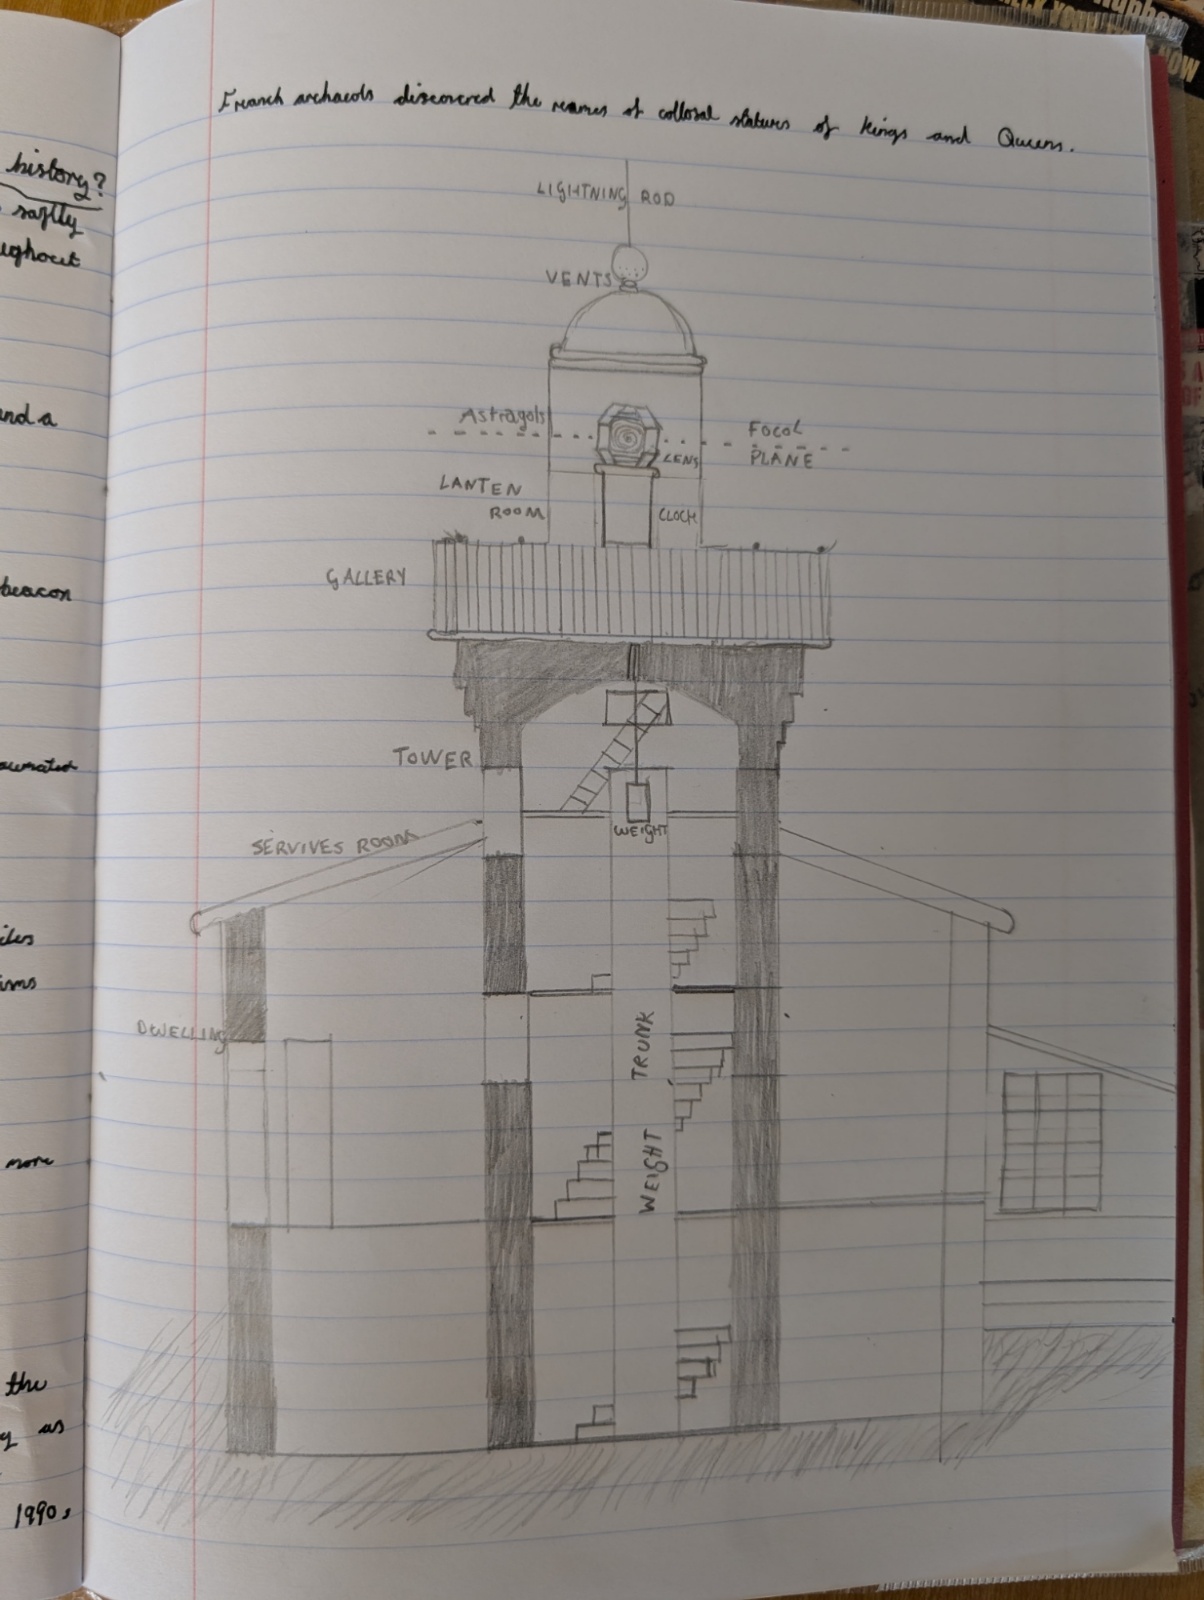 history?
saftly
ughout
and a
beacon
more
the
as
1990s
Franch archaeols discovered the reames of collosal statures of kings and Queens.
LIGHTNING ROD
VENTS
Astragols
FOCOL
PLANE
LENS
LANTEN
ROOM
CLOCK
GALLERY
TOWER
WEIGHT
SERVIVES ROOM
DWELLING
WEIGHT TRUNK
CHECK YOUR
NOW